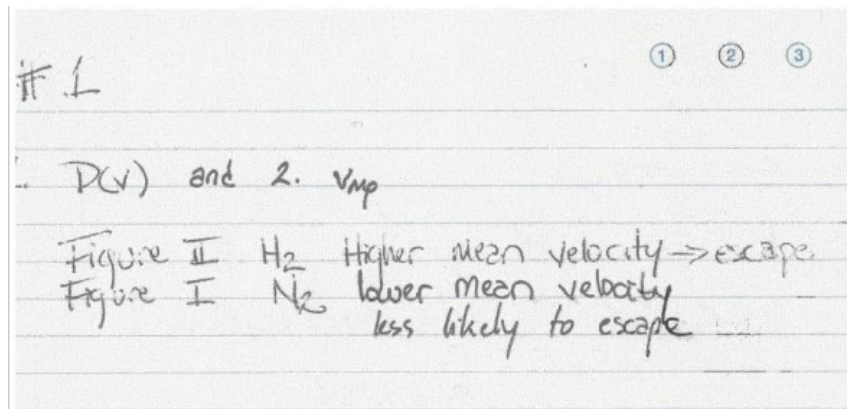 ① ② ③
# 1
. D(v) and 2. vmp
Figure II H2 Higher mean velocity → escape
Figure I N2 lower mean velocity
less likely to escape